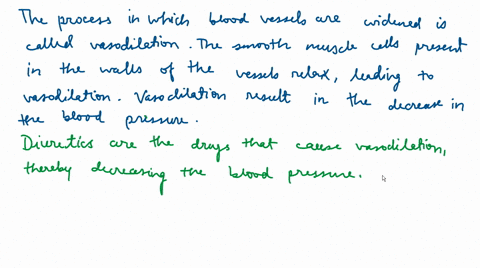 The process in which blood vessels are widened is
called vasodilation. The smooth muscle cells present
in the walls of the vessels relax, leading to
vasodilation. Vasodilation result in the decrease in
the blood pressure.
Diuretics are the drugs that cause vasodilation,
thereby decreasing the blood pressure.